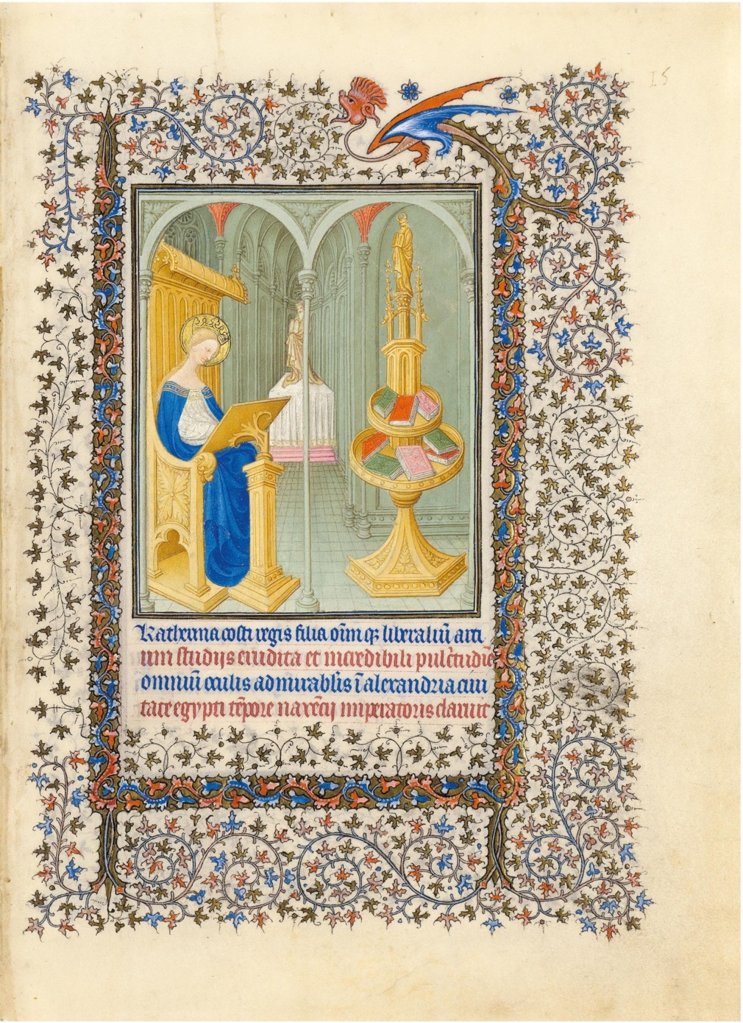 15
Katherina costi regis filia om̄ium q̄ liberaliū arti
um studiis erudita et incredibili pulc̄tudīe
omniū oculis admirabilis ī alexandria ciui
tate egypti tēpore maxēcij imperatoris claruit